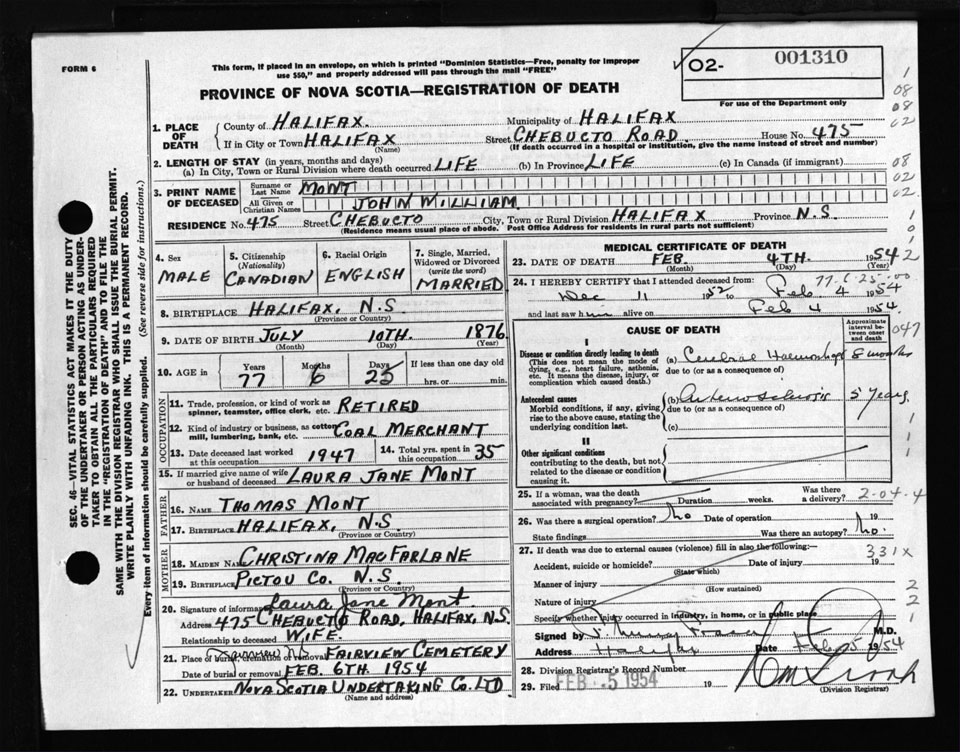 FORM 6
This form, if placed in an envelope, on which is printed "Dominion Statistics—Free, penalty for improper
use $50," and properly addressed will pass through the mail "FREE"
PROVINCE OF NOVA SCOTIA—REGISTRATION OF DEATH
02- 001310
For use of the Department only
1. PLACE OF DEATH
County of HALIFAX Municipality of HALIFAX
If in City or Town HALIFAX (Name) Street CHEBUCTO ROAD House No. 475
(If death occurred in a hospital or institution, give the name instead of street and number)
2. LENGTH OF STAY (in years, months and days)
(a) In City, Town or Rural Division where death occurred LIFE (b) In Province LIFE (c) In Canada (if immigrant)
3. PRINT NAME OF DECEASED
Surname or Last Name MONT
All Given or Christian Names JOHN WILLIAM
RESIDENCE No. 475 Street CHEBUCTO City, Town or Rural Division HALIFAX Province N.S.
(Residence means usual place of abode. Post Office Address for residents in rural parts not sufficient)
4. Sex MALE
5. Citizenship (Nationality) CANADIAN
6. Racial Origin ENGLISH
7. Single, Married, Widowed or Divorced (write the word) MARRIED
8. BIRTHPLACE HALIFAX, N.S.
(Province or Country)
9. DATE OF BIRTH JULY (Month) 10TH. (Day) 1876 (Year)
10. AGE in Years 77 Months 6 Days 25 If less than one day old hrs. or min.
OCCUPATION
11. Trade, profession, or kind of work as spinner, teamster, office clerk, etc. RETIRED
12. Kind of industry or business, as cotton mill, lumbering, bank, etc. COAL MERCHANT
13. Date deceased last worked at this occupation 1947
14. Total yrs. spent in this occupation 35
15. If married give name of wife or husband of deceased LAURA JANE MONT
FATHER
16. NAME THOMAS MONT
17. BIRTHPLACE HALIFAX, N.S.
(Province or Country)
MOTHER
18. MAIDEN NAME CHRISTINA MACFARLANE
19. BIRTHPLACE PICTOU CO. N.S.
(Province or Country)
20. Signature of informant Laura Jane Mont.
Address 475 CHEBUCTO ROAD, HALIFAX, N.S.
Relationship to deceased WIFE.
21. Place of burial, cremation or removal Fairview N.S. FAIRVIEW CEMETERY
Date of burial or removal FEB. 6TH. 1954
22. UNDERTAKER NOVA SCOTIA UNDERTAKING CO. LTD
(Name and address)
MEDICAL CERTIFICATE OF DEATH
23. DATE OF DEATH FEB. (Month) 4TH. (Day) 1954 (Year)
77-6-25-00
24. I HEREBY CERTIFY that I attended deceased from:
Dec 11 1952 to Feb 4 1954
and last saw him alive on Feb 4 1954.
CAUSE OF DEATH
Approximate interval between onset and death
I
Disease or condition directly leading to death
(This does not mean the mode of dying, e.g., heart failure, asthenia, etc. It means the disease, injury, or complication which caused death.)
(a) Cerebral Haemorrhage 8 months
due to (or as a consequence of)
Antecedent causes
Morbid conditions, if any, giving rise to the above cause, stating the underlying condition last.
(b) Arteriosclerosis 5 years
due to (or as a consequence of)
(c)
II
Other significant conditions
contributing to the death, but not related to the disease or condition causing it.
25. If a woman, was the death associated with pregnancy? Duration weeks. Was there a delivery? 2-04-4
26. Was there a surgical operation? no Date of operation 19
State findings Was there an autopsy? no.
27. If death was due to external causes (violence) fill in also the following:—
331X
Accident, suicide or homicide? (State which) Date of injury 19
Manner of injury (How sustained)
Nature of injury
Specify whether injury occurred in industry, in home, or in public place
Signed by J. Murray Fraser M.D.
Address Halifax Date Feb 5 1954
28. Division Registrar's Record Number
29. Filed FEB -5 1954 19
(Division Registrar)
SEC. 46—VITAL STATISTICS ACT MAKES IT THE DUTY
OF THE UNDERTAKER OR PERSON ACTING AS UNDER-
TAKER TO OBTAIN ALL THE PARTICULARS REQUIRED
IN THE "REGISTRATION OF DEATH" AND TO FILE THE
SAME WITH THE DIVISION REGISTRAR WHO SHALL ISSUE THE BURIAL PERMIT.
WRITE PLAINLY WITH UNFADING INK. THIS IS A PERMANENT RECORD.
Every item of information should be carefully supplied. (See reverse side for instructions.)
1
08
08
02
08
02
02
1
0
1
2
047
1
1
1
2
2